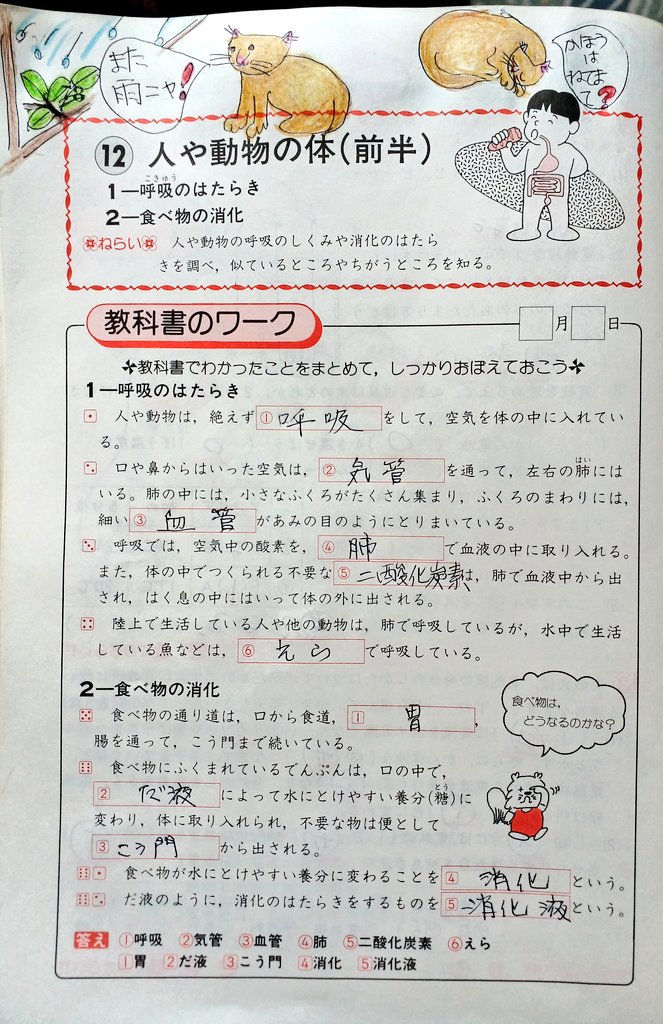 また
雨ニャ!
かほう
は
ねてま
て?
12 人や動物の体(前半)
1―呼吸のはたらき
こきゅう
2―食べ物の消化
ねらい 人や動物の呼吸のしくみや消化のはたら
きを調べ，似ているところやちがうところを知る。
教科書のワーク
月 日
教科書でわかったことをまとめて，しっかりおぼえておこう
1―呼吸のはたらき
人や動物は，絶えず①呼吸をして，空気を体の中に入れてい
る。
口や鼻からはいった空気は，②気管を通って，左右の肺には
はい
いる。肺の中には，小さなふくろがたくさん集まり，ふくろのまわりには，
細い③血管があみの目のようにとりまいている。
呼吸では，空気中の酸素を，④肺で血液の中に取り入れる。
また，体の中でつくられる不要な⑤二酸化炭素は，肺で血液中から出
され，はく息の中にはいって体の外に出される。
陸上で生活している人や他の動物は，肺で呼吸しているが，水中で生活
している魚などは，⑥えらで呼吸している。
2―食べ物の消化
食べ物の通り道は，口から食道，1胃，
腸を通って，こう門まで続いている。
食べ物は，
どうなるのかな?
食べ物にふくまれているでんぷんは，口の中で，
2だ液によって水にとけやすい養分(糖)に
とう
変わり，体に取り入れられ，不要な物は便として
3こう門から出される。
食べ物が水にとけやすい養分に変わることを4消化という。
だ液のように，消化のはたらきをするものを5消化液という。
答え ①呼吸 ②気管 ③血管 ④肺 ⑤二酸化炭素 ⑥えら
1胃 2だ液 3こう門 4消化 5消化液